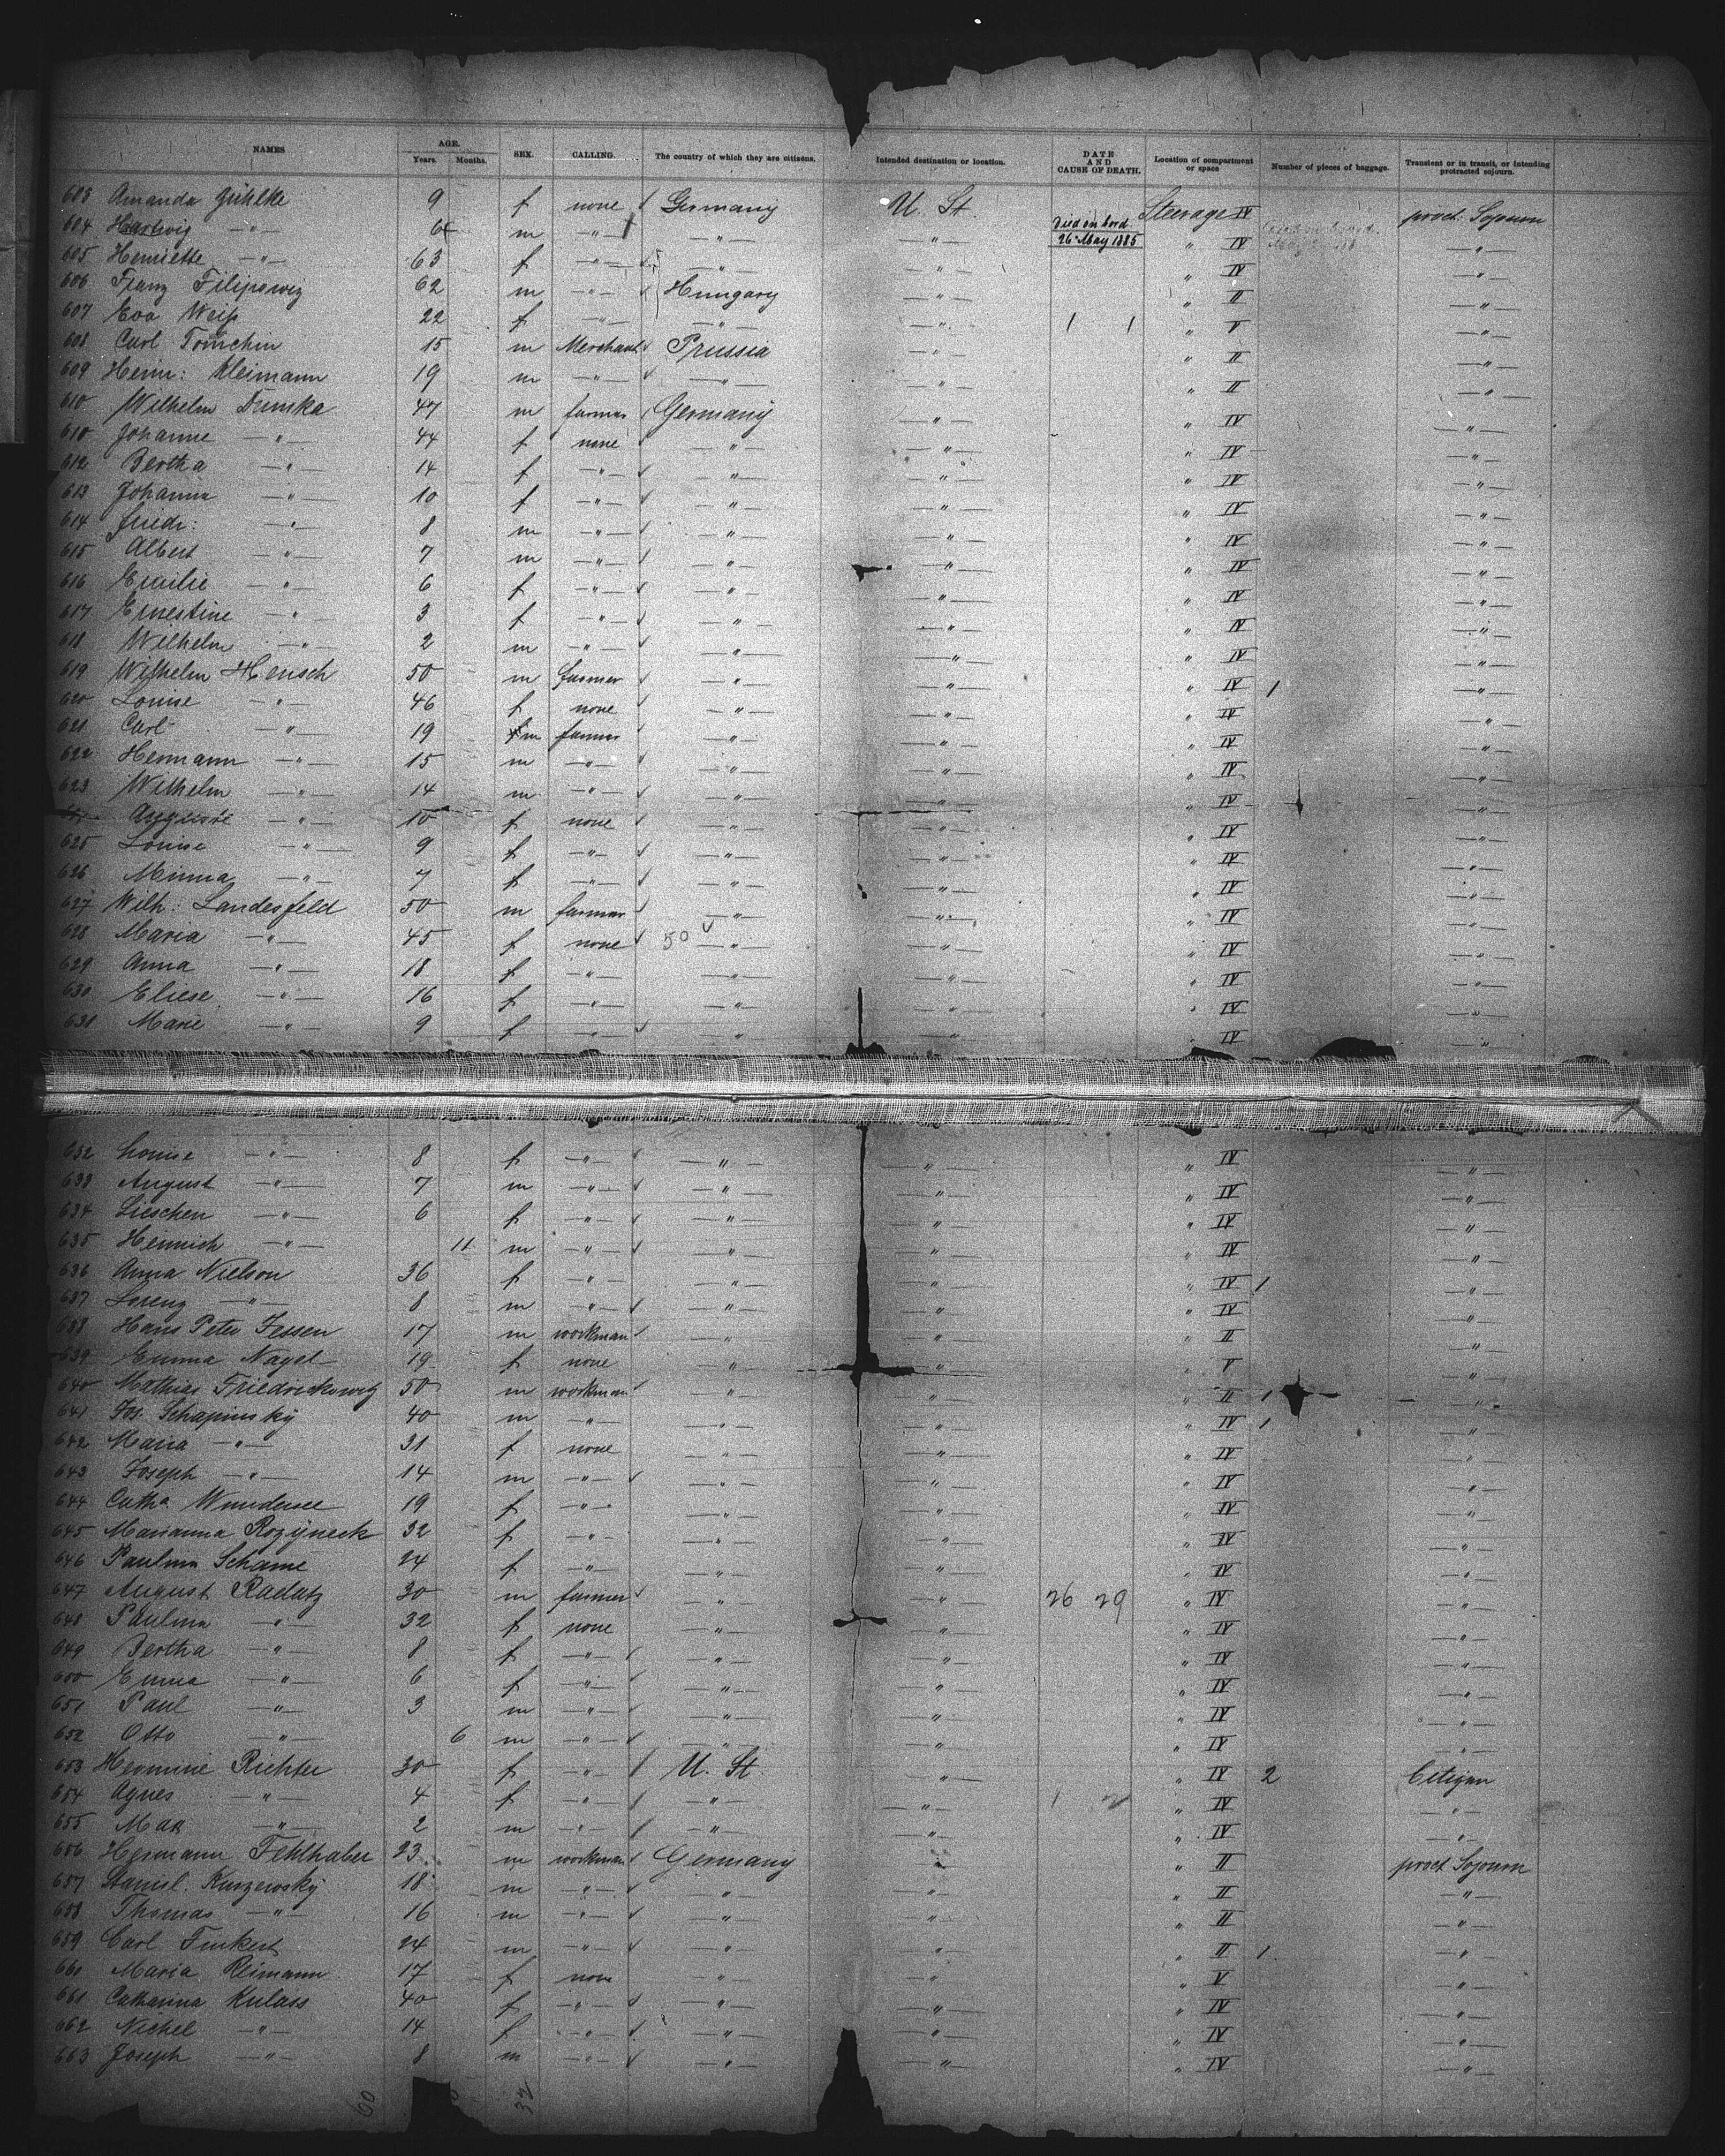 NAMES AGE. Years. Months. SEX. CALLING. The country of which they are citizens. Intended destination or location. DATE AND CAUSE OF DEATH. Location of compartment or space Number of pieces of baggage. Transient or in transit, or intending protracted sojourn.
603 Amanda Gühlke 9 f none Germany U. St. Steerage IV protr. Sojourn
604 Hartwig —"— m —"— —"— —"— Died on bord 26 May 1885 " IV —"—
605 Henriette —"— 63 f —"— —"— —"— " IV —"—
606 Franz Filipowiz 62 m —"— Hungary —"— " II —"—
607 Eva Weiß 22 f —"— —"— —"— 1 1 " V —"—
608 Carl Tomchin 15 m Merchant Prussia —"— " II —"—
609 Heinr: Kleimann 19 m —"— —"— —"— " II —"—
610 Wilhelm Dumka 47 m farmer Germany —"— " IV —"—
610 Johanne —"— 44 f none —"— —"— " IV —"—
612 Bertha —"— 14 f —"— —"— —"— " IV —"—
613 Johanna —"— 10 f —"— —"— —"— " IV —"—
614 Friedr: —"— 8 m —"— —"— —"— " IV —"—
615 Albert —"— 7 m —"— —"— —"— " IV —"—
616 Emilie —"— 6 f —"— —"— —"— " IV —"—
617 Ernestine —"— 3 f —"— —"— —"— " IV —"—
618 Wilhelm —"— 2 m —"— —"— —"— " IV —"—
619 Wilhelm Hensch 50 m farmer —"— —"— " IV 1 —"—
620 Louise —"— 46 f none —"— —"— " IV —"—
621 Carl —"— 19 m farmer —"— —"— " IV —"—
622 Hermann —"— 15 m —"— —"— —"— " IV —"—
623 Wilhelm —"— 14 m —"— —"— —"— " IV —"—
Auguste —"— 10 f none —"— —"— " IV —"—
625 Louise —"— 9 f —"— —"— —"— " IV —"—
626 Minna —"— 7 f —"— —"— —"— " IV —"—
627 Wilh: Landesfeld 50 m farmer —"— —"— " IV —"—
628 Maria —"— 45 f none 50 —"— —"— " IV —"—
629 Anna —"— 18 f —"— —"— —"— " IV —"—
630 Eliese —"— 16 f —"— —"— —"— " IV —"—
631 Marie —"— 9 f —"— —"— —"— " IV —"—
632 Louise —"— 8 f —"— —"— —"— " IV —"—
633 August —"— 7 m —"— —"— —"— " IV —"—
634 Lieschen —"— 6 f —"— —"— —"— " IV —"—
635 Heinrich —"— 11 m —"— —"— —"— " IV —"—
636 Anna Nielson 36 f —"— —"— —"— " IV 1 —"—
637 Lorenz —"— 8 m —"— —"— —"— " IV —"—
638 Hans Peter Jessen 17 m workman —"— —"— " II —"—
639 Emma Nagel 19 f none —"— —"— " V —"—
640 Mathias Friedrickowitz 50 m workman —"— —"— " II 1 —"—
641 Jos. Schapinsky 40 m —"— —"— —"— " IV 1 —"—
642 Maria —"— 31 f none —"— —"— " IV —"—
643 Joseph —"— 14 m —"— —"— —"— " IV —"—
644 Cath. Wundersee 19 f —"— —"— —"— " IV —"—
645 Marianna Rozyneck 32 f —"— —"— —"— " IV —"—
646 Paulina Schame 24 f —"— —"— —"— " IV —"—
647 August Radatz 30 m farmer —"— —"— 26 29 " IV —"—
648 Paulina —"— 32 f none —"— —"— " IV —"—
649 Bertha —"— 8 f —"— —"— —"— " IV —"—
650 Emma —"— 6 f —"— —"— —"— " IV —"—
651 Paul —"— 3 m —"— —"— —"— " IV —"—
652 Otto —"— 6 m —"— —"— —"— " IV —"—
653 Hermine Richter 30 f —"— U. St —"— " IV 2 Citizen
654 Agnes —"— 4 f —"— —"— —"— " IV —"—
655 Max —"— 2 m —"— —"— —"— " IV —"—
656 Hermann Fehlhaber 23 m workman Germany —"— " II protr Sojourn
657 Stanisl. Kurzewsky 18 m —"— —"— —"— " II —"—
658 Thomas —"— 16 m —"— —"— —"— " II —"—
659 Carl Finkert 24 m —"— —"— —"— " II 1 —"—
661 Maria Reimann 17 f none —"— —"— " V —"—
661 Catharina Kulass 40 f —"— —"— —"— " IV —"—
662 Nichel —"— 14 f —"— —"— —"— " IV —"—
663 Joseph —"— 8 m —"— —"— —"— " IV —"—
60 32